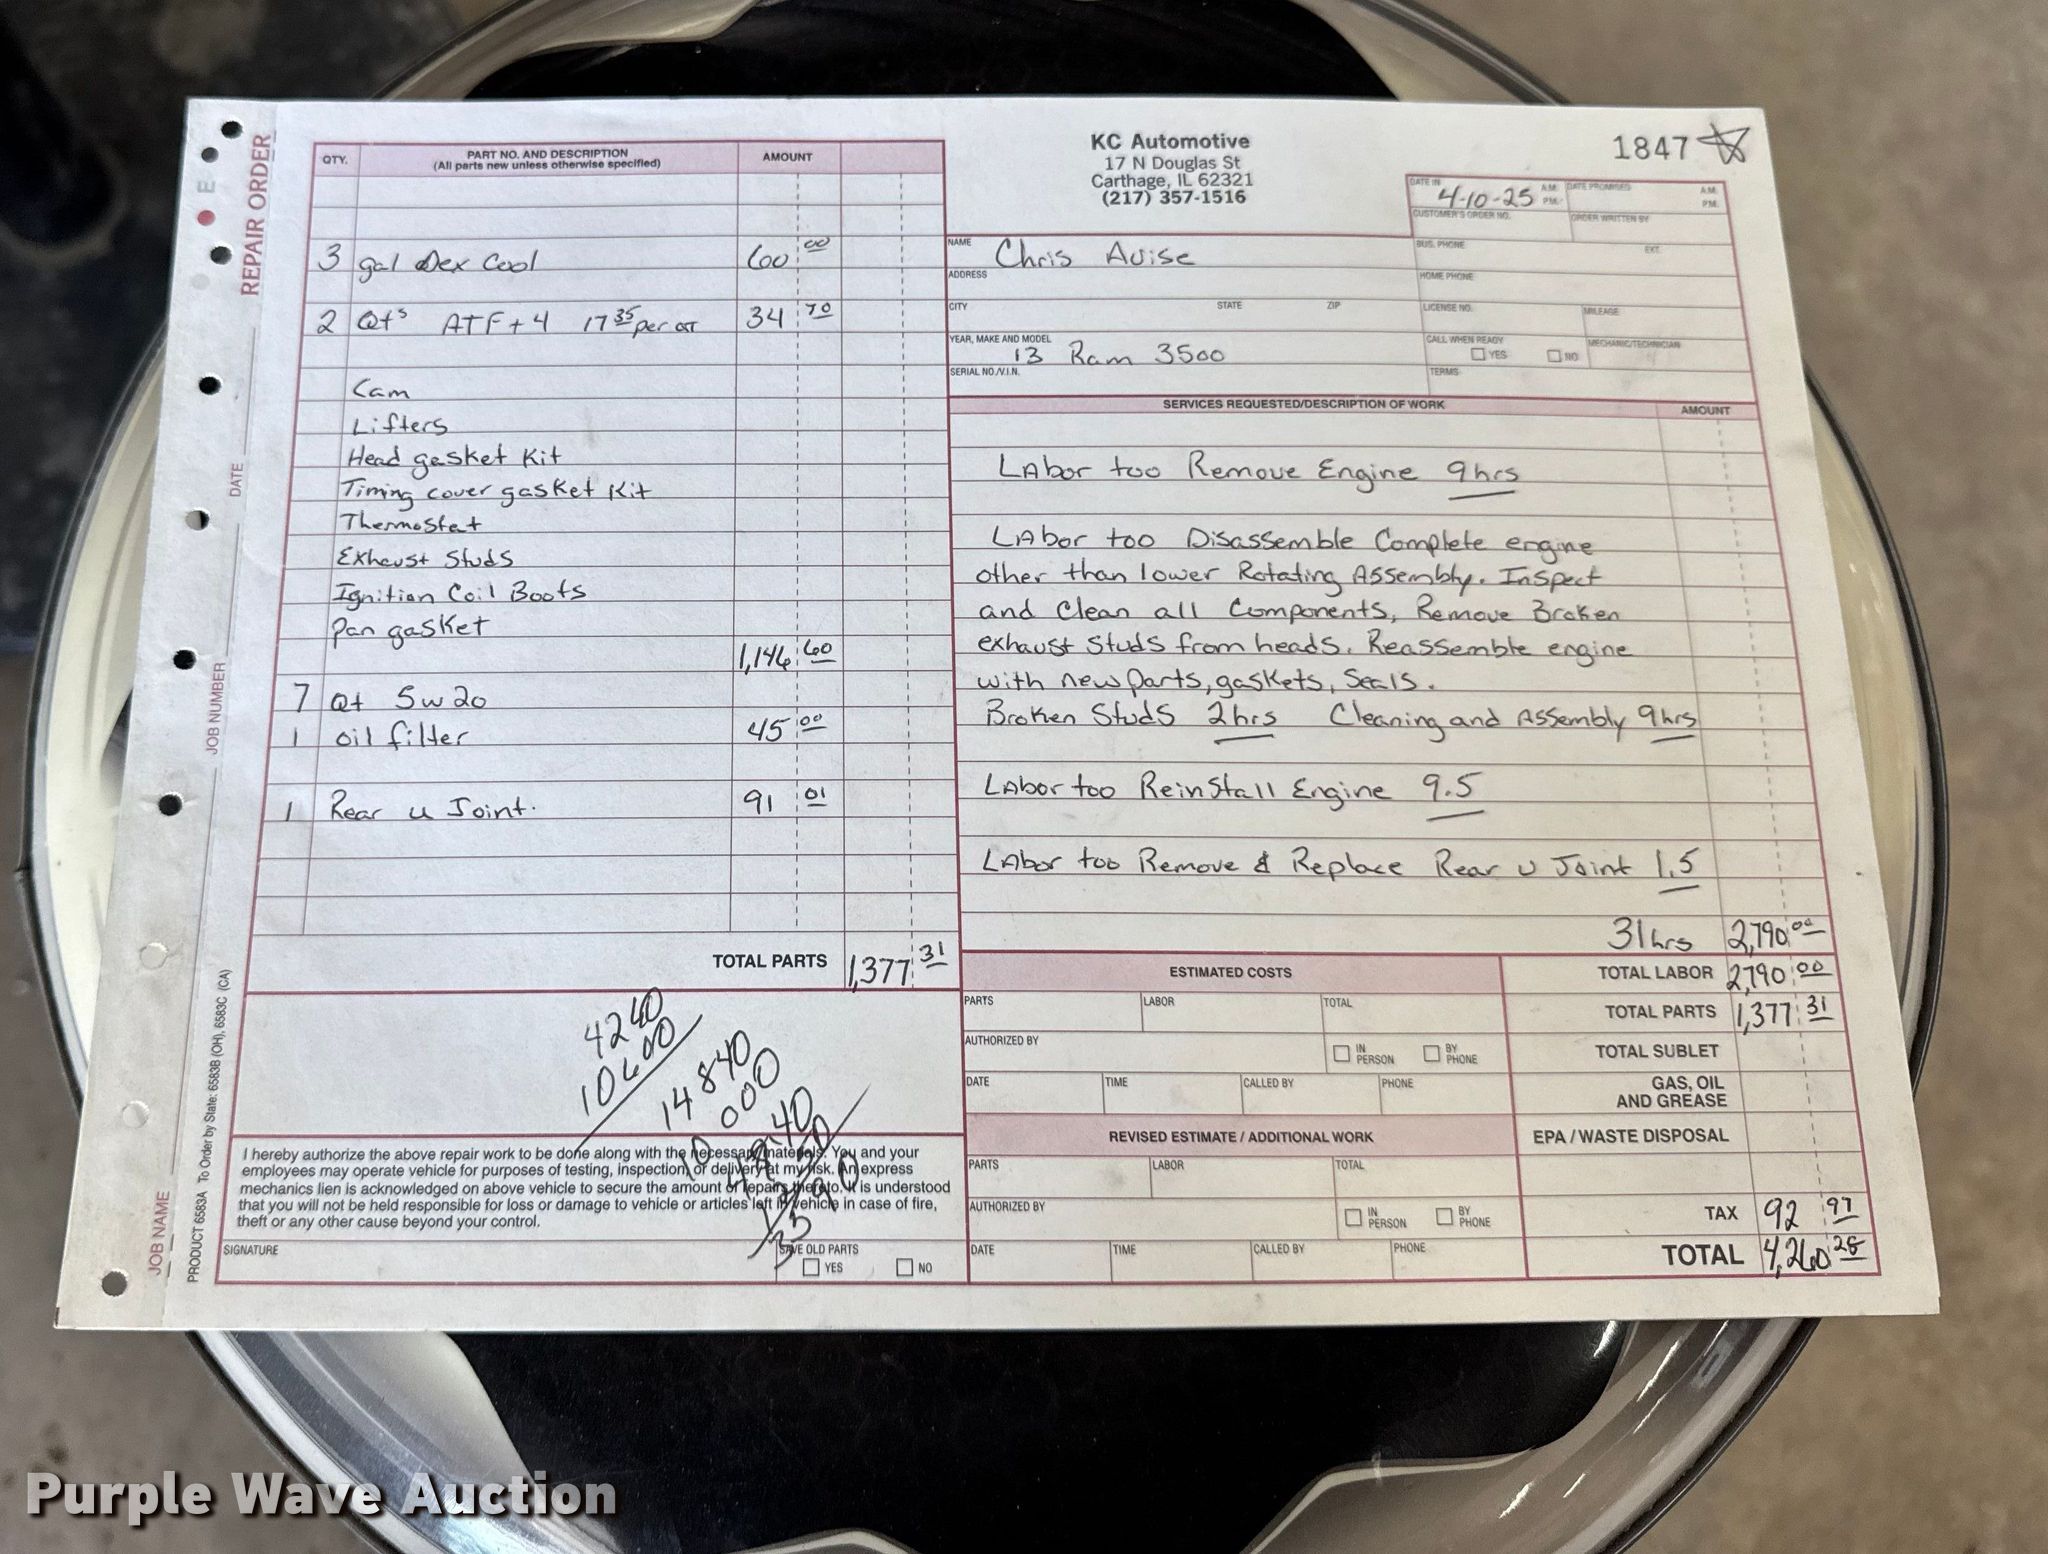 REPAIR ORDER
DATE
JOB NUMBER
JOB NAME
PRODUCT 6583A To Order by State: 6583B (OH), 6583C (CA)
QTY.
PART NO. AND DESCRIPTION
(All parts new unless otherwise specified)
AMOUNT
3 gal Dex Cool 60 00
2 Qts ATF+4 17 35 per QT 34 70
Cam
Lifters
Head gasket Kit
Timing cover gasket Kit
Thermostat
Exhaust Studs
Ignition Coil Boots
Pan gasket
1,146 60
7 Qt 5w20
1 oil filter 45 00
1 Rear u Joint. 91 01
TOTAL PARTS 1,377 31
4240
10600
14840
000
I hereby authorize the above repair work to be done along with the necessary materials. You and your
employees may operate vehicle for purposes of testing, inspection, or delivery at my risk. An express
mechanics lien is acknowledged on above vehicle to secure the amount of repairs thereto. It is understood
that you will not be held responsible for loss or damage to vehicle or articles left in vehicle in case of fire,
theft or any other cause beyond your control.
SIGNATURE
SAVE OLD PARTS
YES NO
KC Automotive
17 N Douglas St
Carthage, IL 62321
(217) 357-1516
1847
DATE IN 4-10-25 A.M. P.M. DATE PROMISED A.M. P.M.
CUSTOMER'S ORDER NO. ORDER WRITTEN BY
NAME Chris Avise BUS. PHONE EXT.
ADDRESS HOME PHONE
CITY STATE ZIP LICENSE NO. MILEAGE
YEAR, MAKE AND MODEL 13 Ram 3500 CALL WHEN READY YES NO MECHANIC/TECHNICIAN
SERIAL NO./V.I.N. TERMS
SERVICES REQUESTED/DESCRIPTION OF WORK AMOUNT
LAbor too Remove Engine 9hrs
LAbor too Disassemble Complete engine
other than lower Rotating Assembly. Inspect
and Clean all Components, Remove Broken
exhaust Studs from heads. Reassemble engine
with new parts, gaskets, Seals.
Broken Studs 2hrs Cleaning and Assembly 9hrs
LAbor too Reinstall Engine 9.5
LAbor too Remove & Replace Rear U Joint 1.5
31hrs 2,790 00
ESTIMATED COSTS
TOTAL LABOR 2790 00
PARTS LABOR TOTAL
TOTAL PARTS 1,377 31
AUTHORIZED BY IN PERSON BY PHONE
TOTAL SUBLET
DATE TIME CALLED BY PHONE
GAS, OIL
AND GREASE
REVISED ESTIMATE / ADDITIONAL WORK
EPA / WASTE DISPOSAL
PARTS LABOR TOTAL
AUTHORIZED BY IN PERSON BY PHONE
TAX 92 97
DATE TIME CALLED BY PHONE
TOTAL 4,260 28
Purple Wave Auction